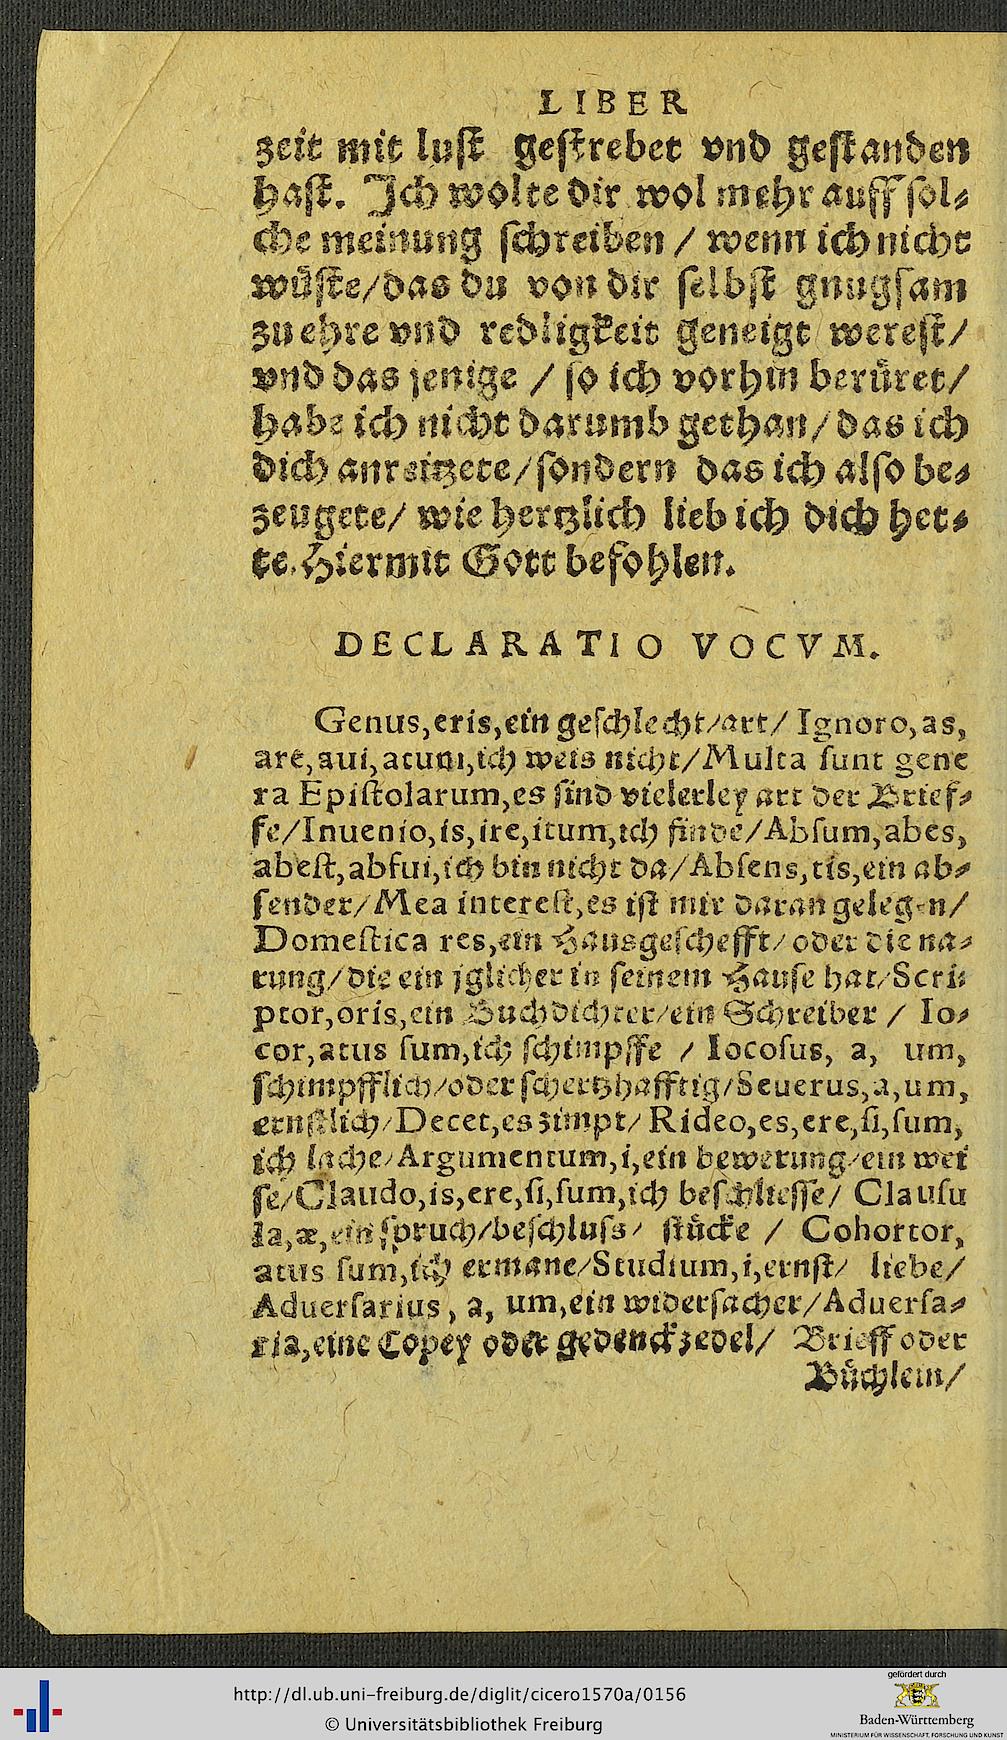 LIBER
zeit mit lust gestrebet vnd gestanden
hast. Ich wolte dir wol mehr auff sol⸗
che meinung schreiben / wenn ich nicht
wüste/das du von dir selbst gnugsam
zu ehre vnd redligkeit geneigt werest/
vnd das jenige / so ich vorhin berüret/
habe ich nicht darumb gethan/das ich
dich anreitzete/sondern das ich also be⸗
zeugete/ wie hertzlich lieb ich dich het⸗
te. Hiermit Gott befohlen.
DECLARATIO VOCVM.
Genus,eris,ein geschlecht/art/ Ignoro,as,
are,aui,atum,ich weis nicht/Multa sunt gene
ra Epistolarum,es sind vielerley art der Brief⸗
fe/Inuenio,is,ire,itum,ich finde/Absum,abes,
abest,abfui,ich bin nicht da/Absens,tis,ein ab⸗
sender/Mea interest,es ist mir daran gelegen/
Domestica res,ein Hausgeschefft/oder die na⸗
rung/die ein jglicher in seinem Hause hat/Scri⸗
ptor,oris,ein Buchdichter/ein Schreiber / Io⸗
cor,atus sum,ich schimpffe / Iocosus, a, um,
schimpfflich/oder schertzhafftig/Seuerus,a,um,
ernstlich/Decet,es zimpt/ Rideo,es,ere,si,sum,
ich lache/Argumentum,i,ein bewerung/ein wei
se/Claudo,is,ere,si,sum,ich beschliesse/ Clausu
la,æ,ein spruch/beschluss/ stücke / Cohortor,
atus sum,ich ermane/Studium,i,ernst/ liebe/
Aduersarius, a, um,ein widersacher/Aduersa⸗
ria,eine Copey oder gedenckzedel/ Brieff oder
Büchlein/
http://dl.ub.uni-freiburg.de/diglit/cicero1570a/0156
© Universitätsbibliothek Freiburg
gefördert durch
Baden-Württemberg
MINISTERIUM FÜR WISSENSCHAFT, FORSCHUNG UND KUNST